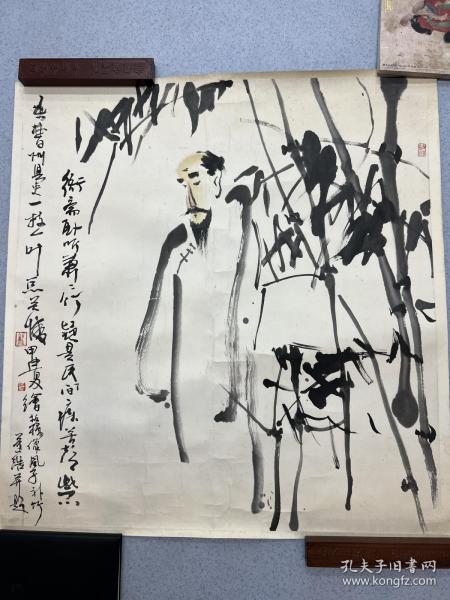 衙斋卧听萧萧竹 疑是民间疾苦声 些
小吾曹州县吏 一枝一叶总关情 甲申夏
绘板桥像 风子补竹
并题
孔夫子旧书网
www.kongfz.com